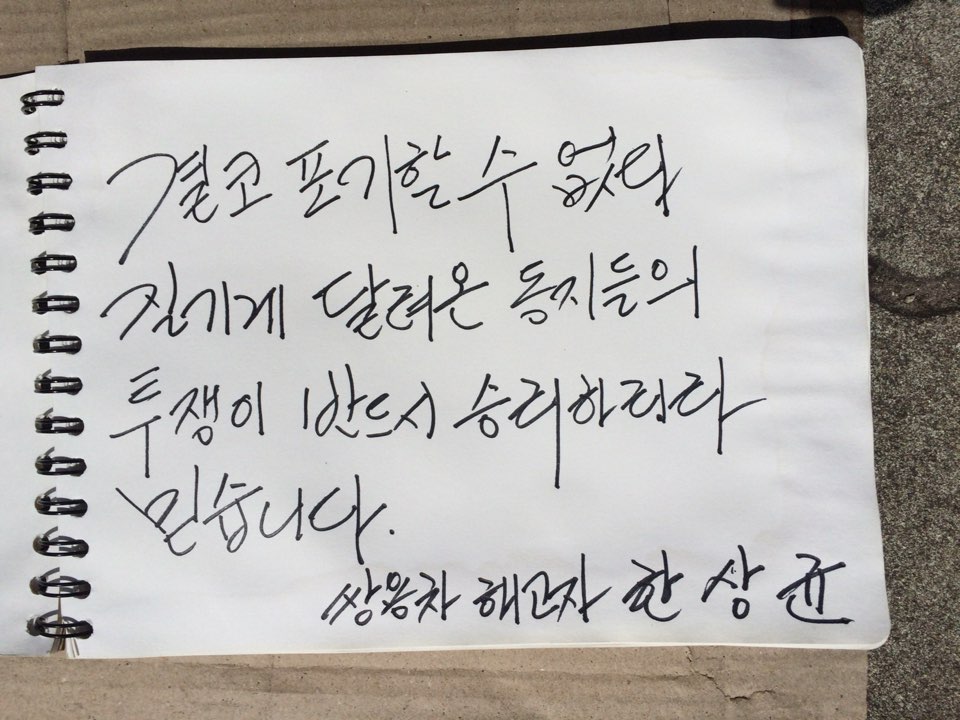 결코 포기할 수 없다
질기게 달려온 동지들의
투쟁이 반드시 승리하리라
믿습니다.
쌍용차 해고자 한상균